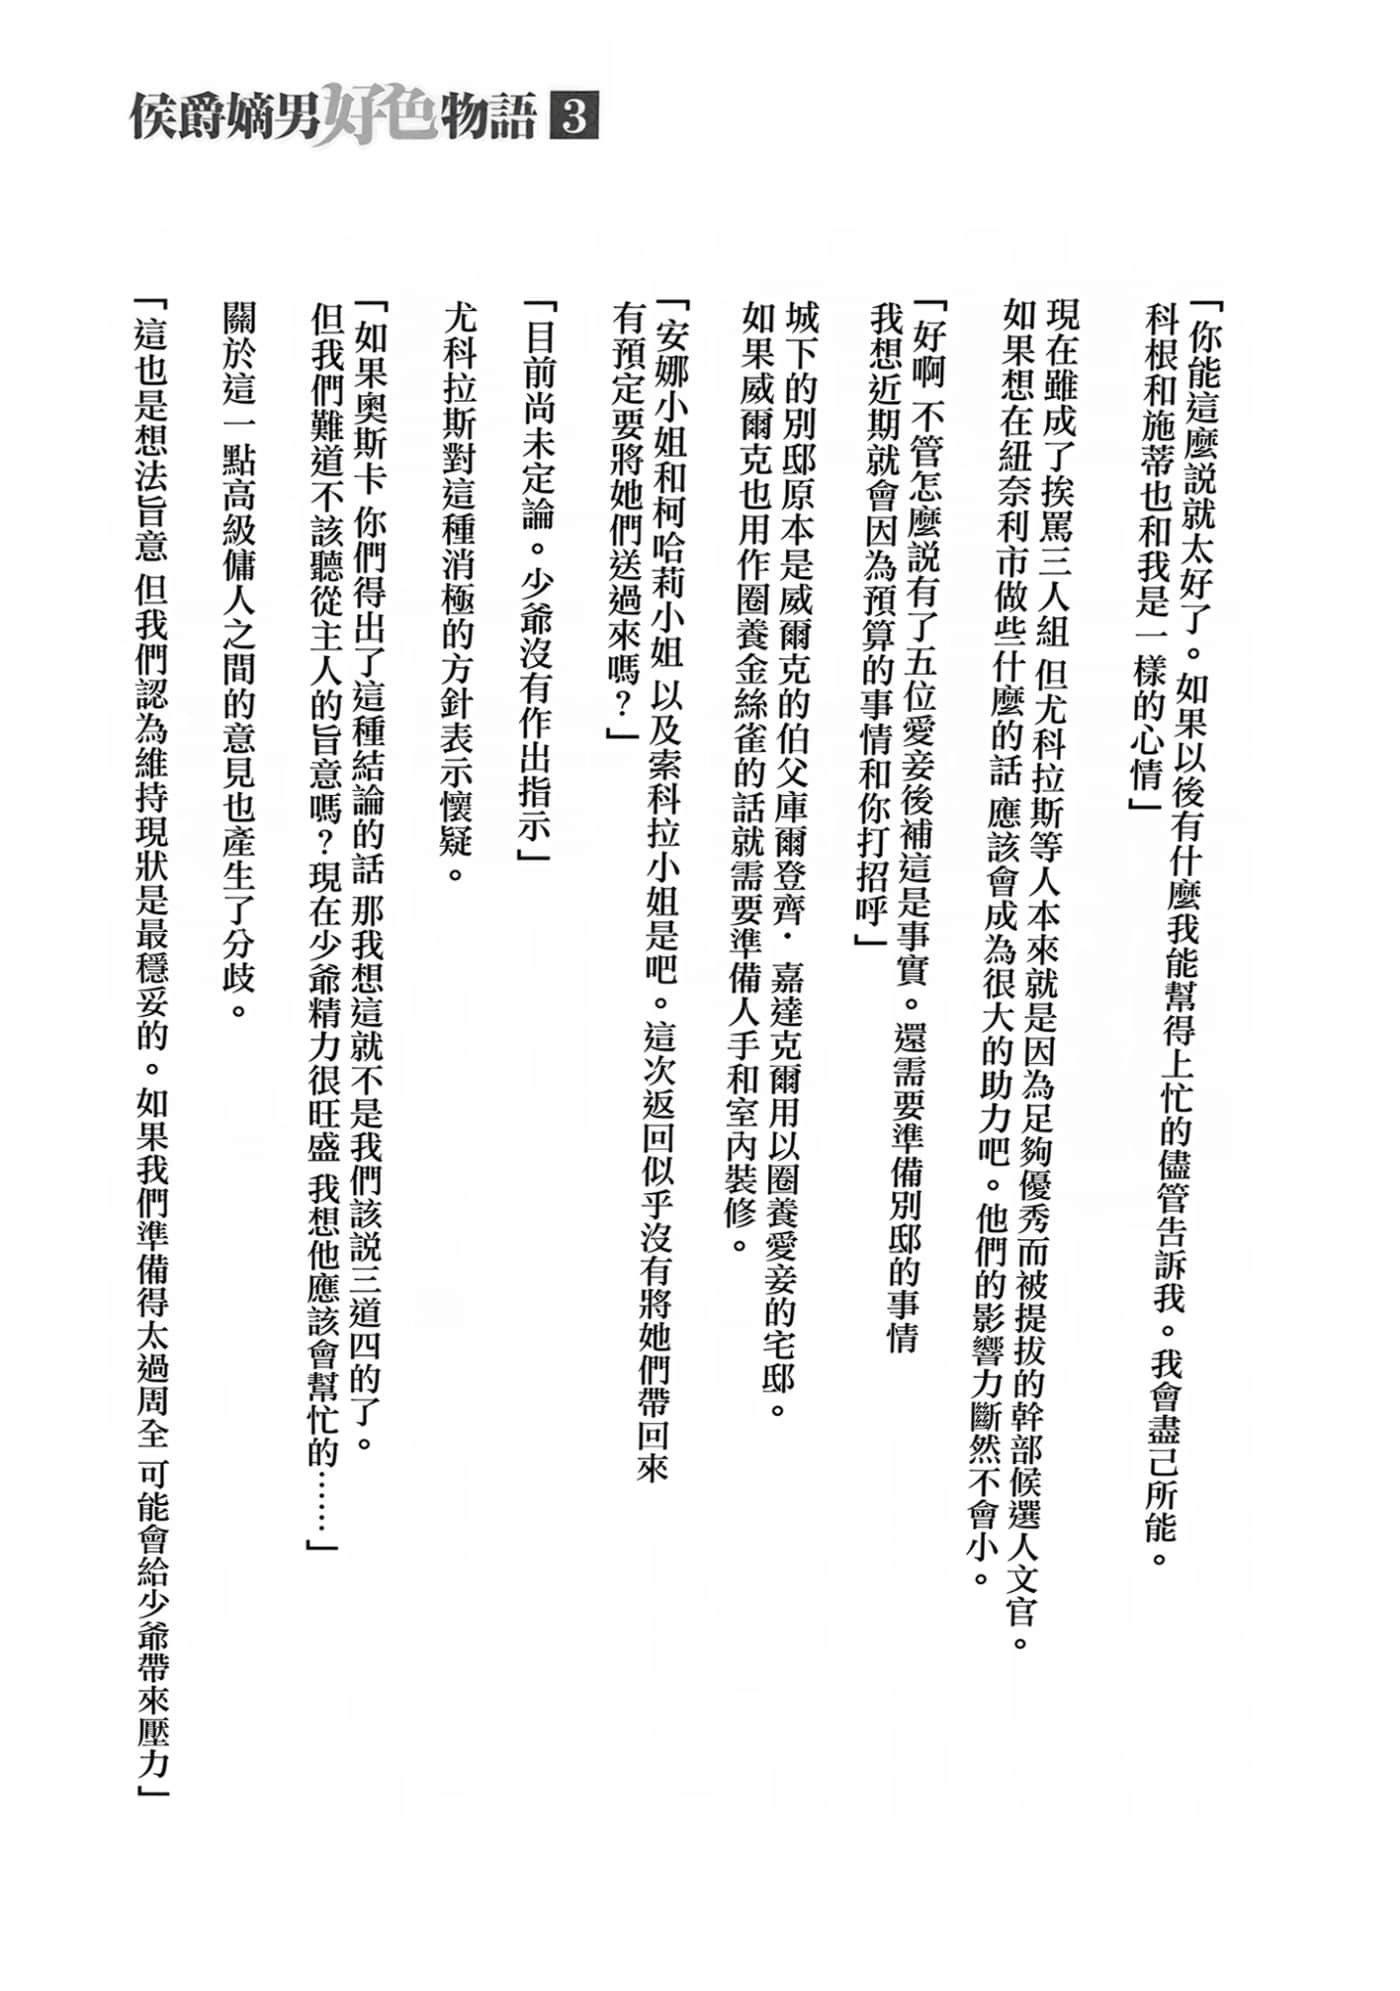 侯爵嫡男好色物語 3
「你能這麼説就太好了。如果以後有什麼我能幫得上忙的儘管告訴我。我會盡己所能。
科根和施蒂也和我是一樣的心情」
現在雖成了挨罵三人組 但尤科拉斯等人本來就是因為足夠優秀而被提拔的幹部候選人文官。
如果想在紐奈利市做些什麼的話 應該會成為很大的助力吧。他們的影響力斷然不會小。
「好啊 不管怎麼説有了五位愛妾後補這是事實。還需要準備別邸的事情
我想近期就會因為預算的事情和你打招呼」
城下的別邸原本是威爾克的伯父庫爾登齊·嘉達克爾用以圈養愛妾的宅邸。
如果威爾克也用作圈養金絲雀的話就需要準備人手和室內裝修。
「安娜小姐和柯哈莉小姐 以及索科拉小姐是吧。這次返回似乎沒有將她們帶回來
有預定要將她們送過來嗎?」
「目前尚未定論。少爺沒有作出指示」
尤科拉斯對這種消極的方針表示懷疑。
「如果奧斯卡 你們得出了這種結論的話 那我想這就不是我們該説三道四的了。
但我們難道不該聽從主人的旨意嗎?現在少爺精力很旺盛 我想他應該會幫忙的……」
關於這一點高級傭人之間的意見也產生了分歧。
「這也是想法旨意 但我們認為維持現狀是最穩妥的。如果我們準備得太過周全 可能會給少爺帶來壓力」